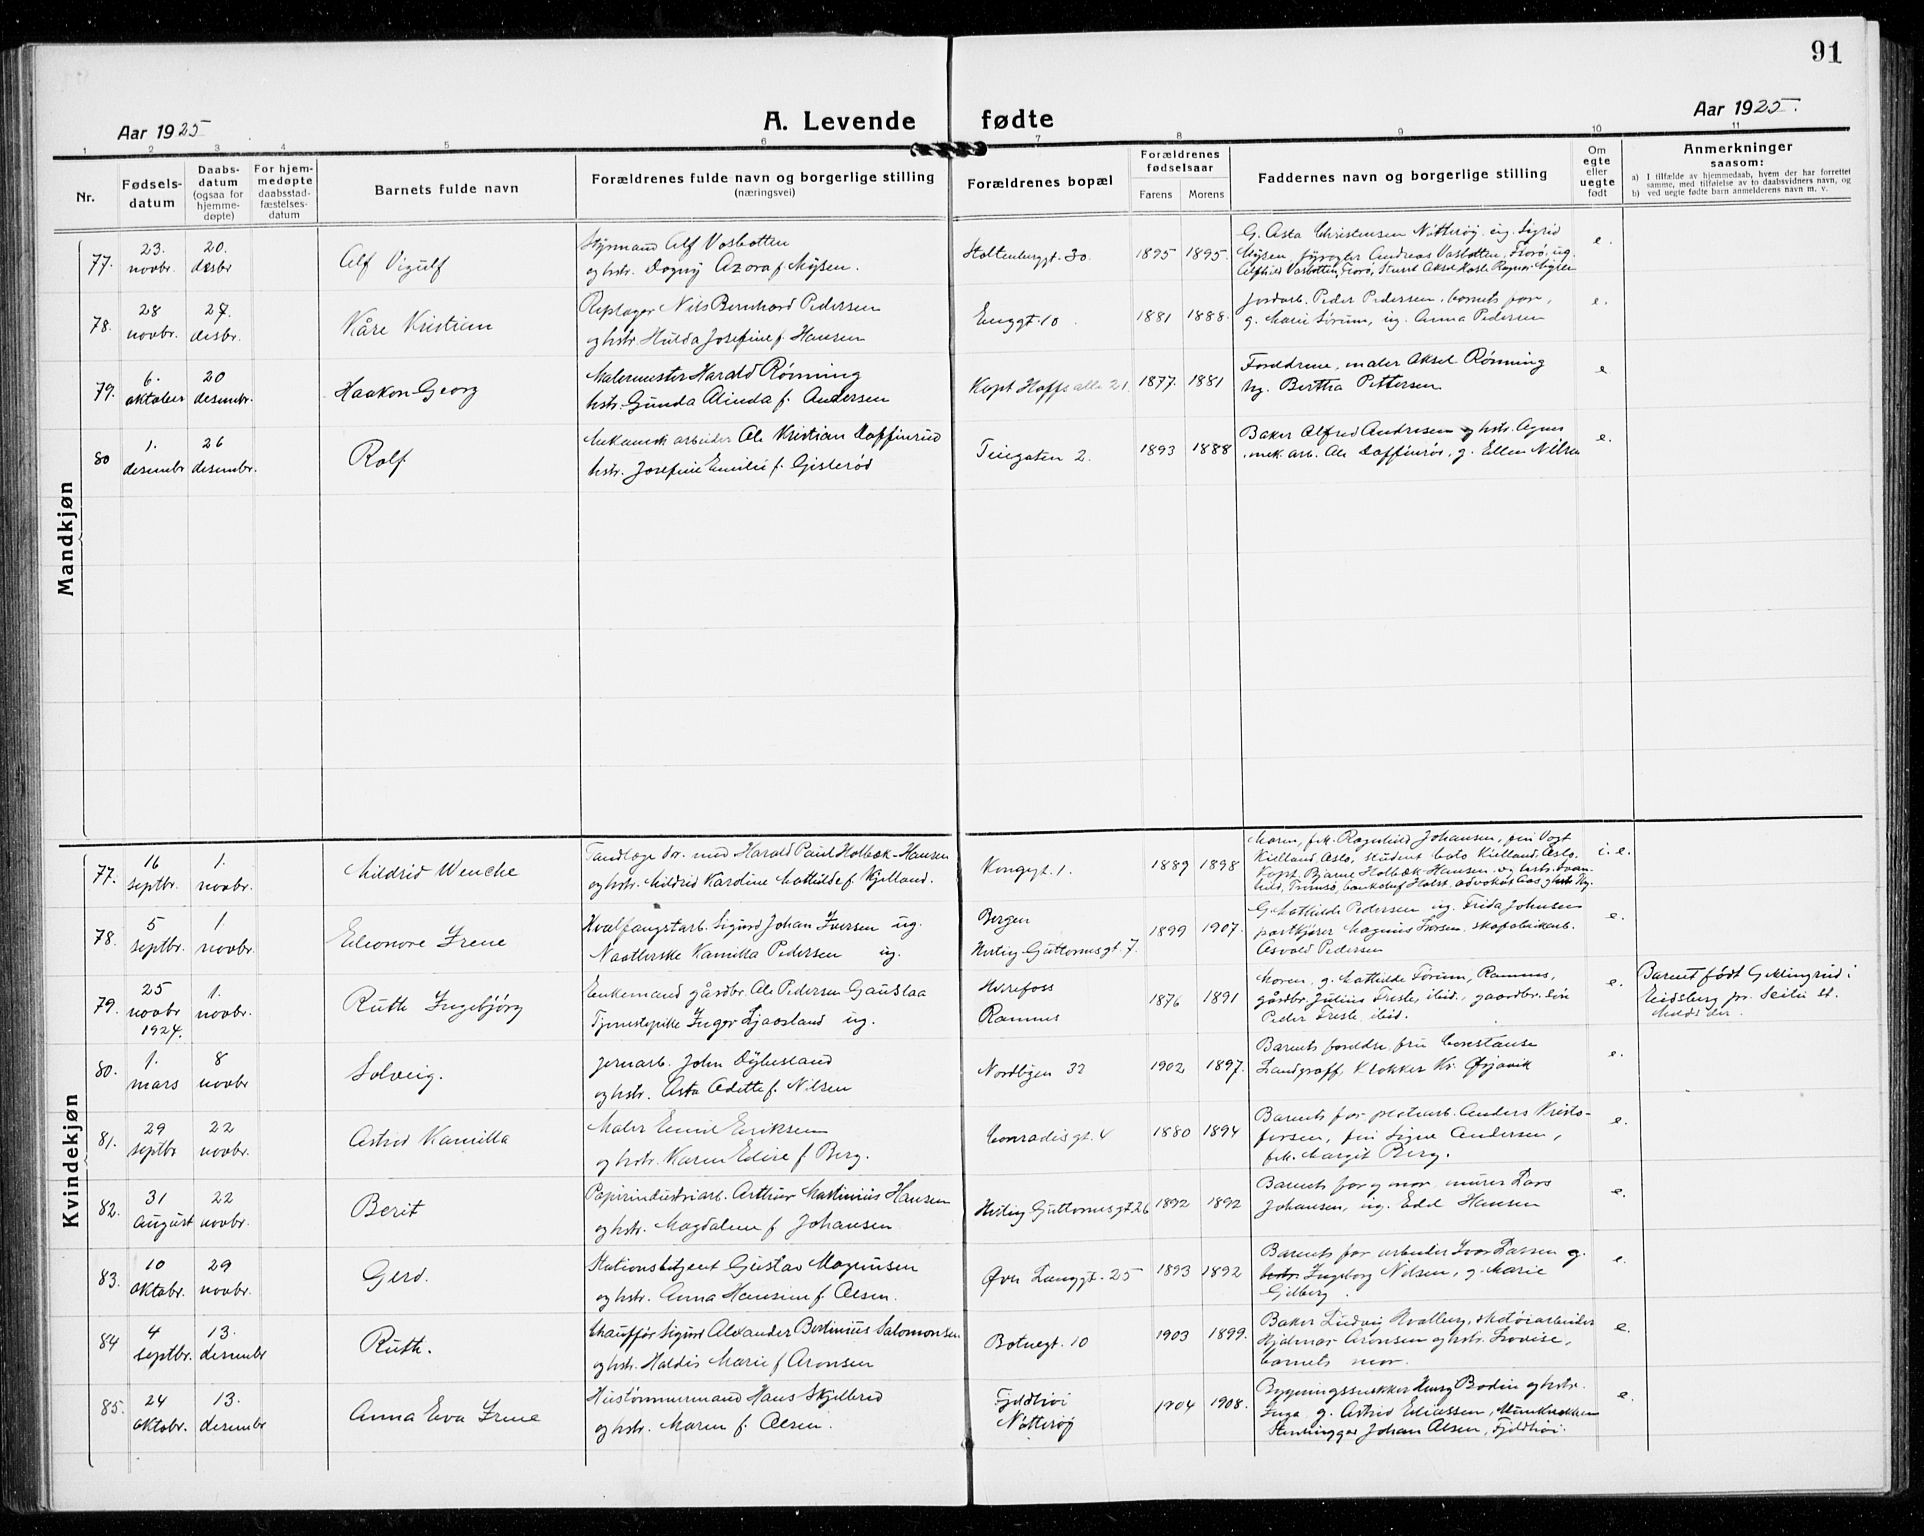 91
Aar 1925
A. Levende fødte
Aar 1925.
1 2 3 4 5 6 7 8 9 10 11
Nr.
Fødsels-
datum
Daabs-
datum
(ogsaa for
hjemme-
døpte)
For hjem-
medøpte
daabsstad-
fæstelses-
datum
Barnets fulde navn
Forældrenes fulde navn og borgerlige stilling
(næringsvei)
Forældrenes bopæl
Forældrenes
fødselsaar
Farens Morens
Faddernes navn og borgerlige stilling
Om
egte
eller
uegte
født
Anmerkninger
saasom:
a) I tilfælde av hjemmedaab, hvem der har forrettet
samme, med tilføielse av to daabsvidners navn, og
b) ved uegte fødte barn anmelderens navn m. v.
Mandkjøn
77. 23. novbr. 20. desbr Alf Vigulf
Styrmand Alf Vasbotten
og hstr. Dagny Azora f. Mysen.
Stoltenberggt. 30. 1895 1895.
G. Asta Christensen Nøtterøy, ug. Sigrid
Mysen, Andreas Vasbotten, Florø, ug.
Alfhild Vasbotten, Florø,
e.
78. 28 novbr. 27. desbr. Kåre Kristian
Repslager Nils Bernhard Pedersen
og hstr. Hulda Josefine f. Hansen
Enggt. 10. 1881 1888.
Jordarb. Peder Pedersen, barnets far,
g. Marie Sørum, ug. Anna Pedersen
e.
79. 6. oktober 20 desembr. Haakon Georg
Malermester Harald Rønning
hstr. Gunda Alinda f. Andersen
Kapt Hoffs alle 21. 1877. 1881
Foreldrene, maler Aksel Rønning
ug. Bertha Pettersen
e
80 1. desembr 26 desembr. Rolf
Mekanisk arbeider Ole Kristian Daffinrud
hstr. Josefine Emilie f. Gisterød
Teiegaten 2. 1893 1888
Baker Alfred Andresen og hstr. Agnes
mek. arb. Ole Daffinrød, g. Ellen Nilsen
e.
Kvindekjøn
77. 16 septbr. 1. novbr. Mildrid Wenche
Tandlæge dr. med Harald Paul Holbæk-Hansen
og hstr. Mildrid Karoline Mathilde f. Kjelland.
Kongegt. 1. 1889 1898
Moren, frk. Ragnhild Johansen, fru Vogt
Kielland, Oslo, student Cato Kielland, Oslo.
Kapt. Bjarne Holbæk-Hansen og hstr.
Tromsø,
i. e.
78. 5 septbr. 1. novbr. Eleonore Irene
Hvalfangstarb. Sigurd Johan Iversen ug.
Kamilla Pedersen ug.
Bergen
Hertug Guttormsgt 7. 1899 1907.
G. Mathilde Pedersen ug. Frida Johnsen
Magnus
Asvald Pedersen
e.
79. 25 novbr 1924. 1. novbr. Ruth Ingebjørg
Enkemand gårdbr. Ole Pedersen Gauslaa
Tjenestepike Inger Ljaasland ug.
Herefoss
Ramnes 1876 1891
Moren, g. Mathilde Forum, Ramnes,
gårdbr. Julius Freste, ibid., gaardbr. søn
Peder Freste, ibid.
e.
Barnet født i
Eidsberg
80. 1. mars 8 novbr Solveig.
Jernarb. John Dybesland
og hstr. Asta Odette f. Nilsen
Nordbyen 32 1902 1897.
Barnets foreldre, fru Constanse
Landgraff, klokker Kr. Ørjavik
e.
81. 29 septbr 22 novbr. Astrid Kamilla
Maler Emil Eriksen
og hstr. Karen Edise f Berg.
Conradisgt. 4 1880 1894
Barnets far Anders Kristo-
fersen, fru Signe Andersen,
frk. Margit Berg.
e.
82. 31 August 22 novbr. Berit
Papirindustriarb. Arthur Martinius Hansen
og hstr. Magdalene f Johansen
Hertug Guttormsgt 26 1892 1892
Barnets far og mor, murer Lars
Johansen, ug. Edel Hansen
e.
83. 10 Oktobr. 29 novbr. Gerd.
Stationsbetjent Gustav Magnusen
og hstr. Anna Hansine f. Olsen.
Øvre Langgt. 25 1893 1892
Barnets far arbeider Ivar Larsen g.
Ingeborg Nilsen, g. Marie
Gilberg.
e.
84 4 septbr. 13. desembr Ruth.
Chauffør Sigurd Alexander Bertinius Salomonsen
og hstr. Haldis Marie f Aronsen
Botnegt. 10 1903 1899.
Baker Ludvig Hvalberg, skotøiarbeider
Hjalmar Aronsen og hstr. Lovise,
barnets mor.
e.
85. 24 oktobr. 13. desembr Anna Eva Irene
Hustømmermand Hans Skjelbred
og hstr. Maren f. Olsen.
Fjeldhøi
Nøtterøy 1904 1908.
Bygningssnekker Henry Bodin og hstr.
Inga g. Astrid Eliassen,
Stenhugger Johan Olsen, Fjeldhøi.
e.